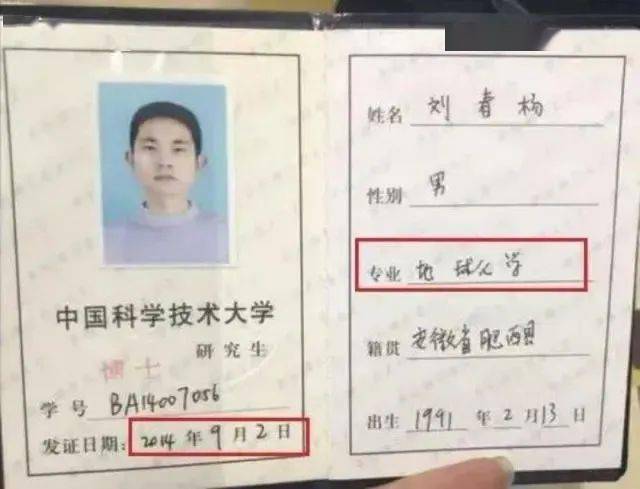 中国科学技术大学
研究生
博士
学号 BA14007056
发证日期: 2014 年 9 月 2 日
姓名 刘春杨
性别 男
专业 地球化学
籍贯 安徽省肥西县
出生 1991 年 2 月 13 日